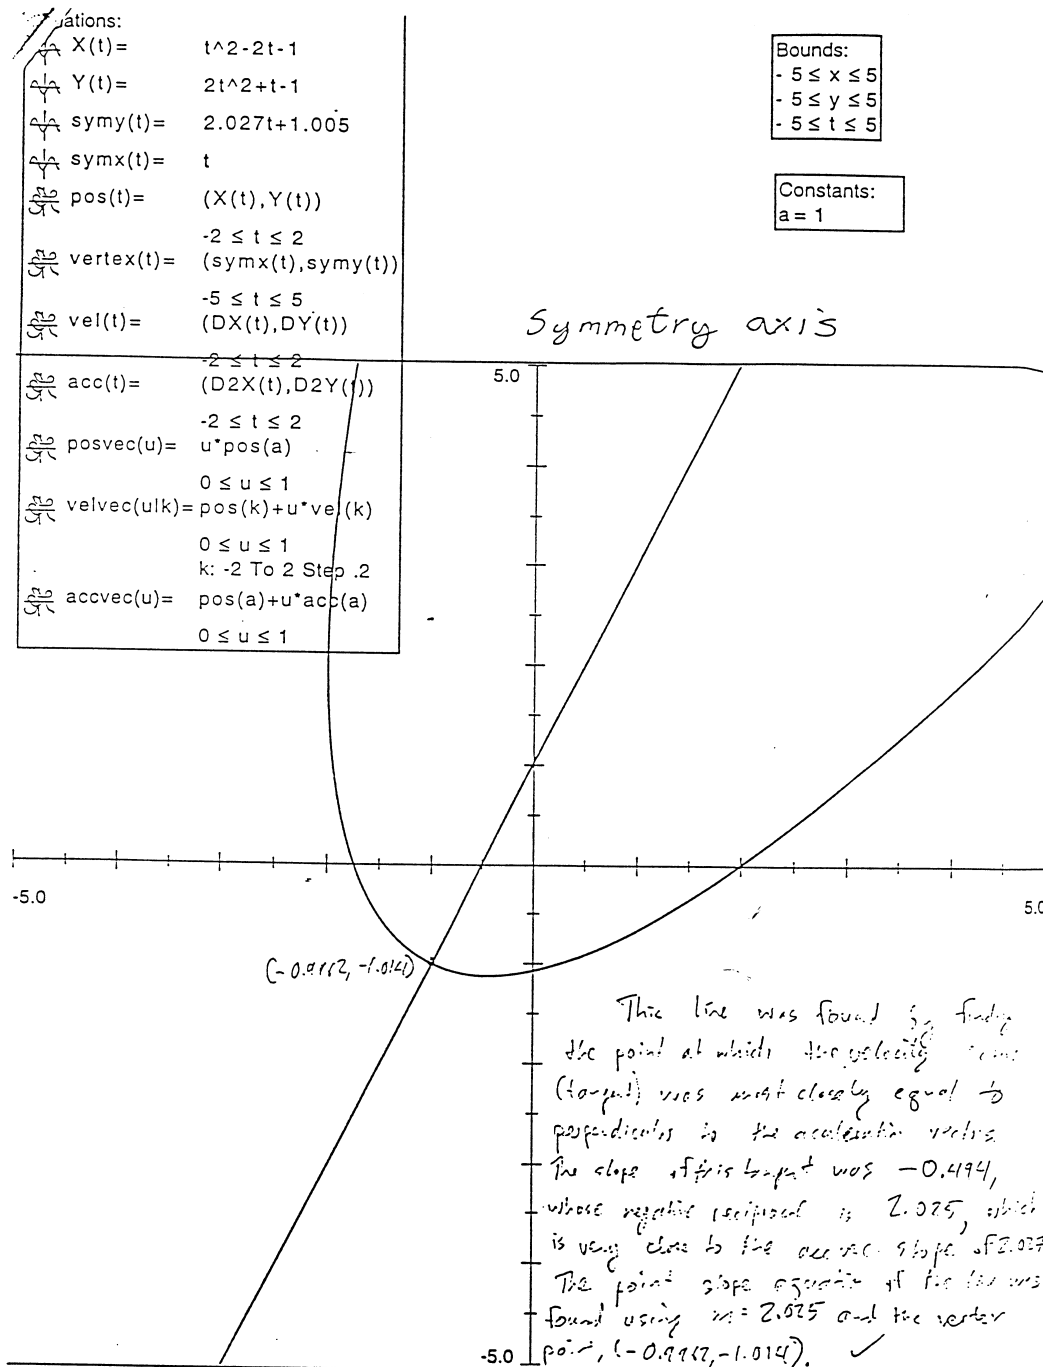 ations:
X(t)= t^2-2t-1
Y(t)= 2t^2+t-1
symy(t)= 2.027t+1.005
symx(t)= t
pos(t)= (X(t),Y(t))
-2 ≤ t ≤ 2
vertex(t)= (symx(t),symy(t))
-5 ≤ t ≤ 5
vel(t)= (DX(t),DY(t))
-2 ≤ t ≤ 2
acc(t)= (D2X(t),D2Y(t))
-2 ≤ t ≤ 2
posvec(u)= u*pos(a)
0 ≤ u ≤ 1
velvec(u|k)= pos(k)+u*vel(k)
0 ≤ u ≤ 1
k: -2 To 2 Step .2
accvec(u)= pos(a)+u*acc(a)
0 ≤ u ≤ 1
Bounds:
- 5 ≤ x ≤ 5
- 5 ≤ y ≤ 5
- 5 ≤ t ≤ 5
Constants:
a = 1
Symmetry axis
5.0
-5.0
5.0
(-0.9962, -1.014)
This line was found by finding
the point at which the velocity
(tangent) was most closely equal to
perpendicular to the acceleration vector
The slope of this tangent was -0.494,
whose negative reciprocal is 2.025, which
is very close to the acc vec slope of 2.027
The point slope equation of the line was
found using m = 2.025 and the vertex
point, (-0.9962, -1.014).
-5.0